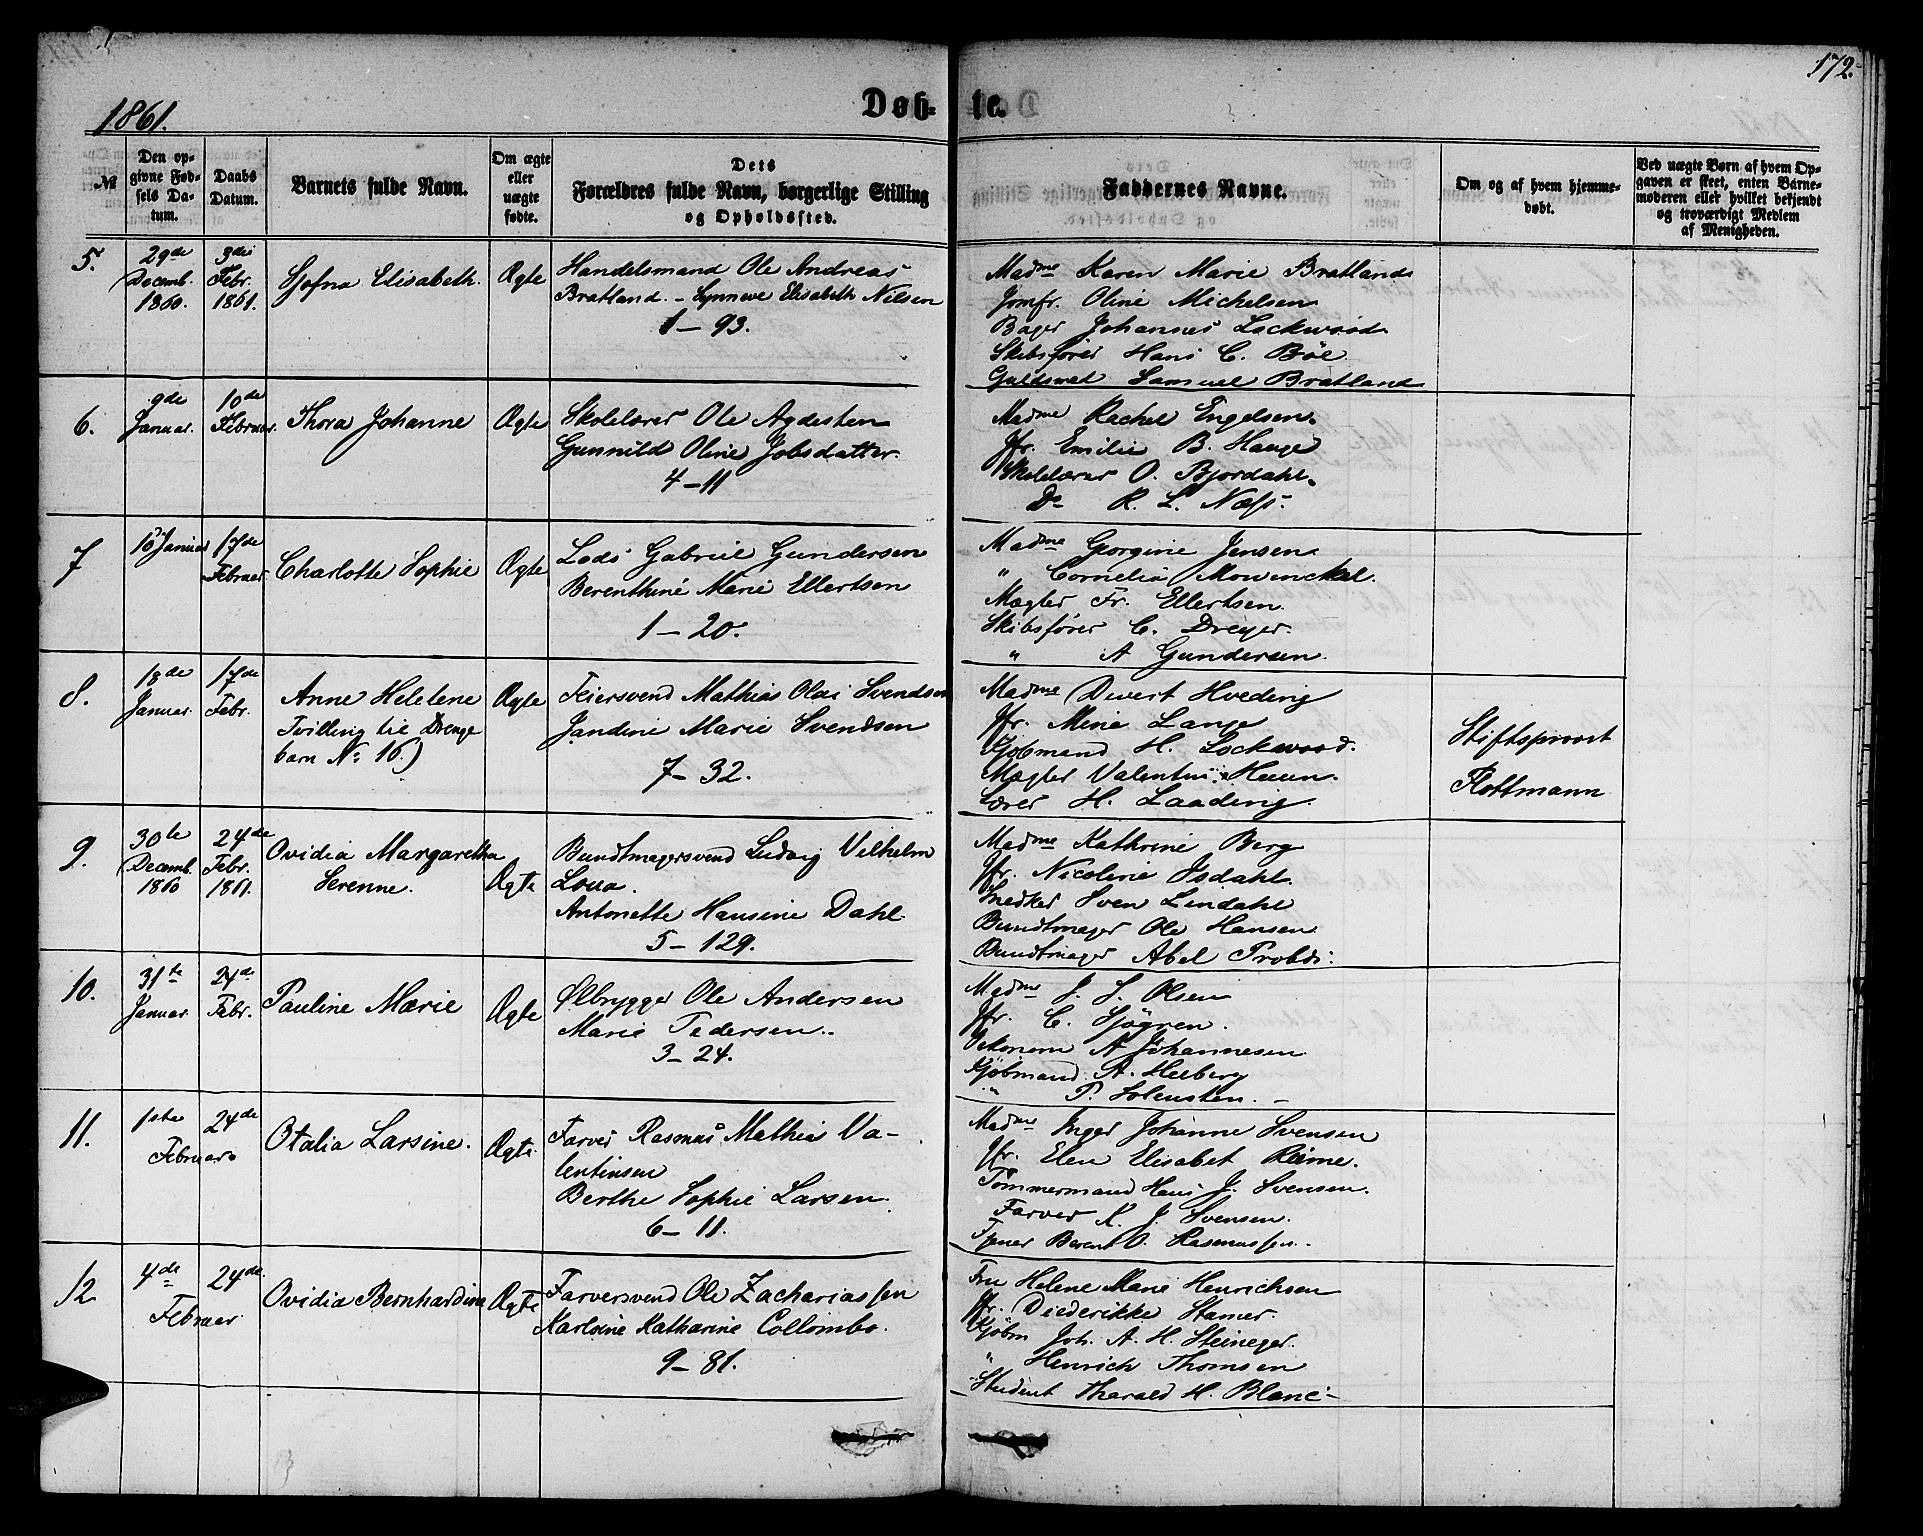 172.
1861.
Døb-te.
№
Den op-
givne Fød-
sels Da-
tum.
Daabs
Datum.
Barnets fulde Navn.
Om ægte
eller
uægte
fødte.
Dets
Forældres fulde Navn, borgerlige Stilling
og Opholdssted.
Faddernes Navne.
Om og af hvem hjemme-
døbt.
Ved uægte Børn af hvem Op-
gaven er skeet, enten Barne-
moderen eller hvilket bekjendt
og troværdigt Medlem
af Menigheden.
5.
29de
Decemb.
1860.
3die
Febr.
1861.
Sjofna Elisabeth.
Ægte
Handelsmand Ole Andreas
Bratland. – Synneve Elisabeth Nilsen
1 – 93.
Madme Karen Marie Bratland
Jomfr. Oline Michelsen
Bager Johannes Lockwood
Skibsfører Hans C. Böe
Guldsmed Samuel Bratland
6.
9de
Januar.
10de
Februar.
Thora Johanne
Ægte
Skolelærer Ole Agdesten
Gunnild Oline Jobsdatter.
4 – 11
Madme Rachel Engelsen.
Jfr. Emilie B. Hauge
Skolelærer O. Bjordahl.
Do R. L. Næss.
7
10 Januar
17de
Februar
Charlotte Sophie
Ægte
Lods Gabriel Gundersen
Berenthine Marie Ellertsen
1 – 20.
Madme Georgine Jensen
" Cornelia Mowinckel.
Mægler Fr. Ellertsen.
Skibsfører C. Dreyer.
" A Gundersen.
8.
18de
Januar.
17de
Febr.
Anne Helelene
Tvilling til Drenge
barn No 16.)
Ægte
Feiersvend Mathias Olai Svendsen
Jandine Marie Svendsen
7 – 32.
Madme Divert Hveding
Jfr. Mine Lange
Kjøbmand H. Lockwood.
Mægler Valentin
Lærer H. Laading.
Stiftsprovst
Flottmann
9.
30te
Decemb.
1860
24de
Febr.
1861.
Ovidia Margaretha
Serenne.
Ægte
Bundtmagersvend Ludvig Vilhelm
Antonette Hansine Dahl
5 – 129.
Madme Kathrine Berg
Jfr. Nicoline Isdahl.
Snedker Sven Lindahl
Bundtmager Ole Hansen
Bundtmager Abel
10.
31te
Januar.
24de
Febr.
Pauline Marie
Ægte
Ølbrygger Ole Andersen
Marie Pedersen.
3 – 24.
Madme J. S. Olsen
Jfr. C. Sjögren.
Oekonom A Johannesen
Kjøbmand A. Heiberg
" P. Solensten. –
11.
1ste
Februar
24de
Otalia Larsine.
Ægte.
Farver Rasmus Mathias Va-
lentinsen
Berthe Sophie Larsen.
6 – 11.
Madme Inger Johanne Svensen
Jfr. Elen Elisabet Reime.
Tømmermand Hans J. Svensen.
Farver K. J. Svensen.
Tjener Berent O. Rasmussen.
12
4de
Februar
24de.
Ovidia Bernhardine
Ægte
Farversvend Ole Zachariassen
Karloine Katharine Collombo.
9 – 81.
Fru Helene Marie Henrichsen
Jfr. Diederikke Stamer.
Kjøbm Joh. A. H. Steineger.
" Henrich Thomsen
Student Tharald H. Blanc –